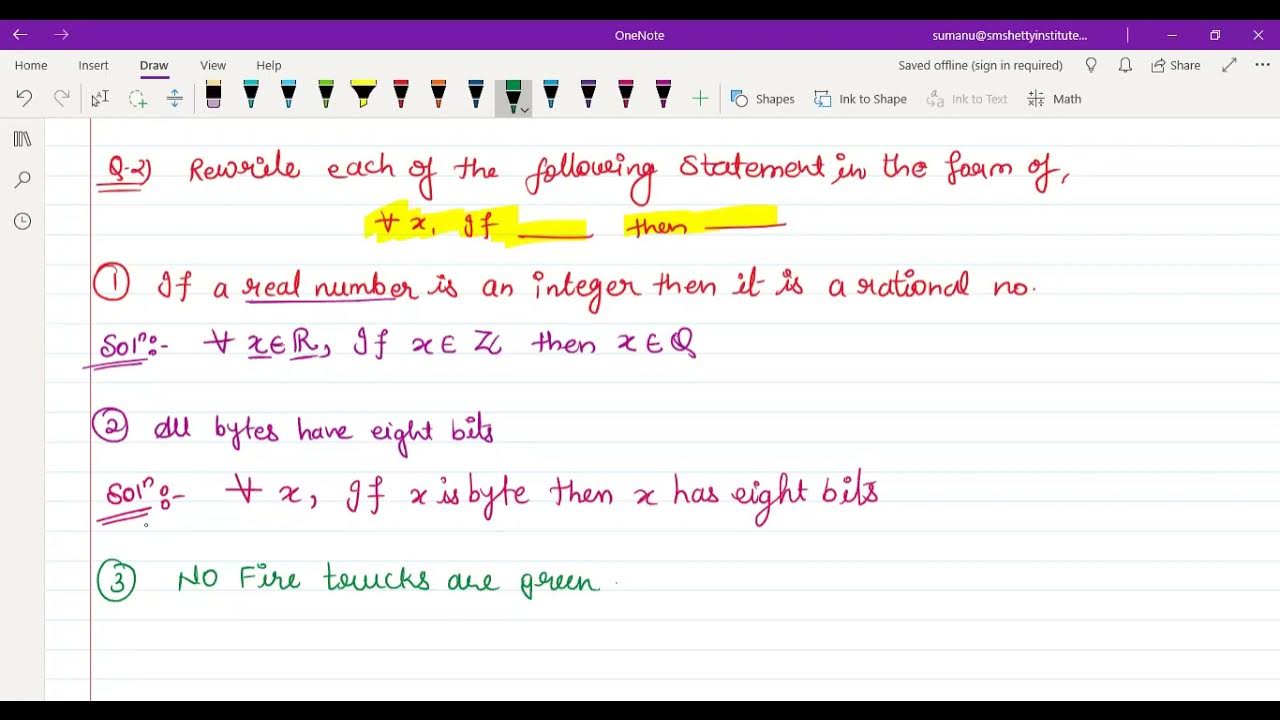 OneNote
sumanu@smshettyinstitute...
Home Insert Draw View Help
Saved offline (sign in required) Share
Shapes Ink to Shape Ink to Text Math
Q-2) Rewrite each of the following statement in the form of,
∀ x, If ______ then ______
① If a real number is an integer then it is a rational no.
Solⁿ:- ∀ x∈ℝ, If x∈ ℤ then x∈ℚ
② All bytes have eight bits
Solⁿ:- ∀ x, If x is byte then x has eight bits
③ No Fire trucks are green.